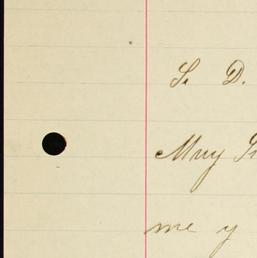 S. D.
Muy
me y